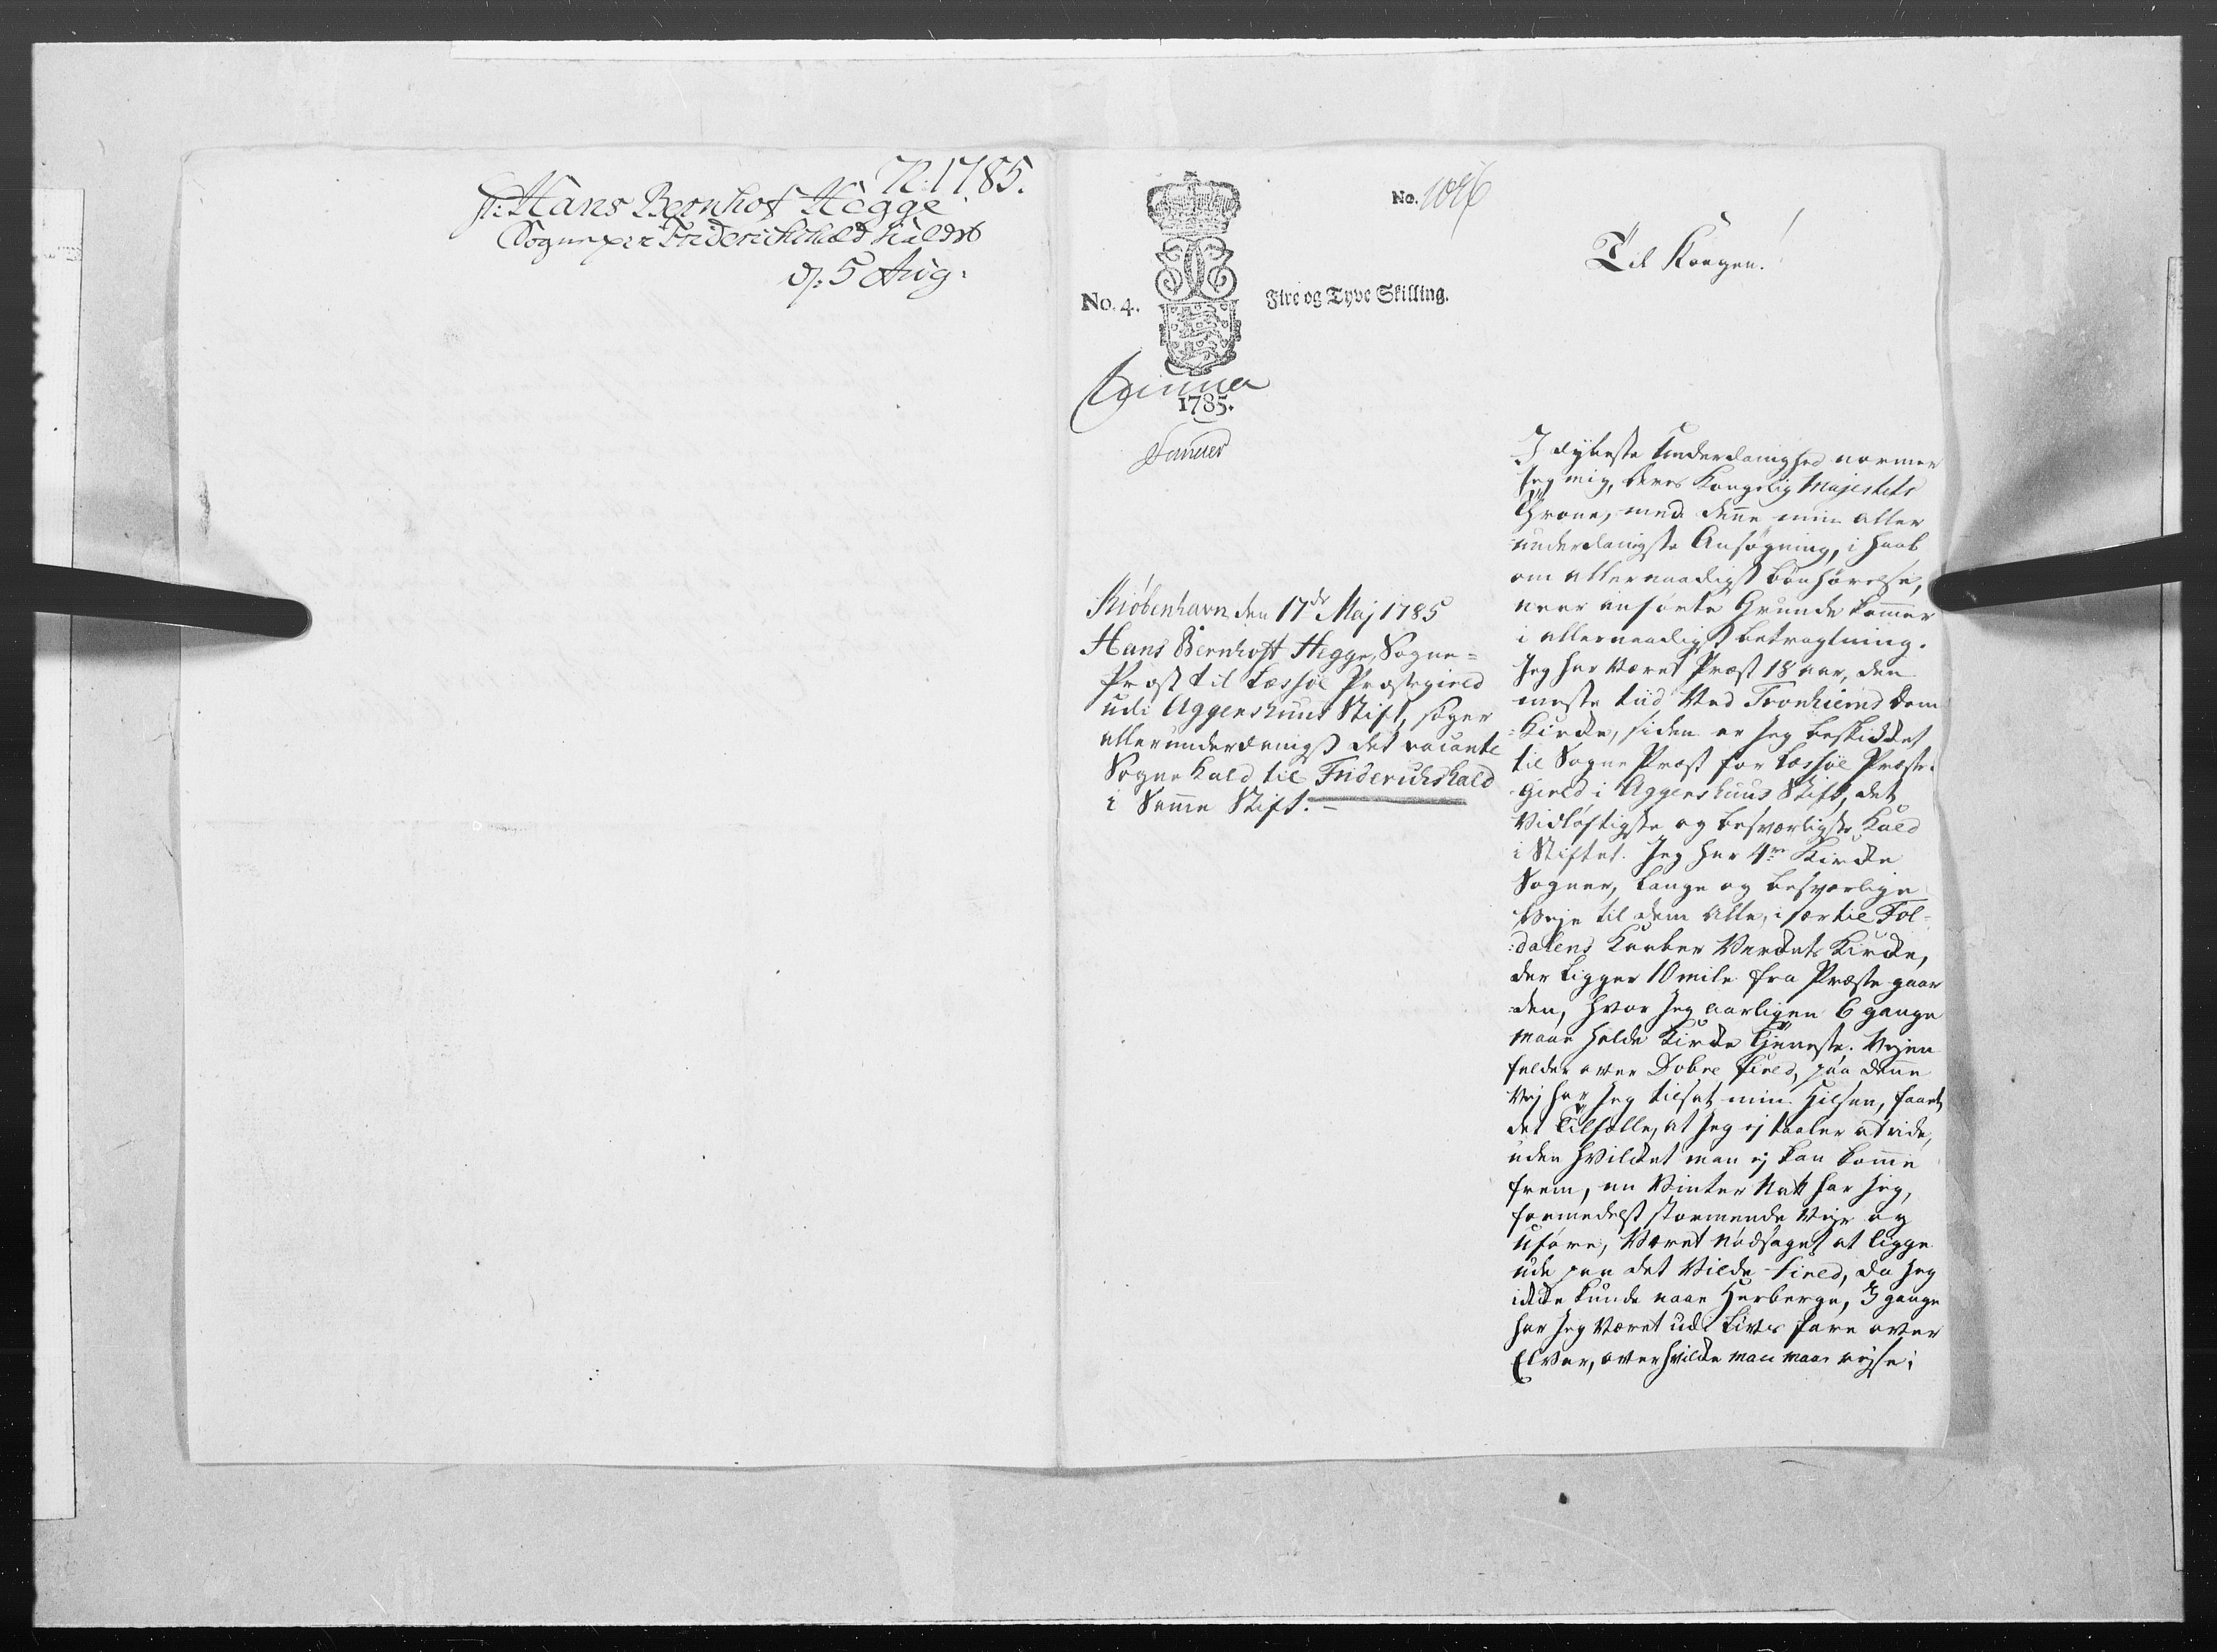 N: 1785.
Hr: Hans Bernhof Hegge
Sognepr: Friderichshald kaldt
d: 5 Aug.
No. 1046
No. 4.
Fire og Tyve Skilling.
1785.
Kiøbenhavn den 17de Maj 1785
Hans Bernhoft Hegge, Sogne=
Præst til Lessøe Præstegield
udi Aggershuus Stift, søger
allerunderdanigst det vacante
Sogne Kald til Friderichshald
i Samme Stift. –
Til Kongen!
I dybeste Underdanighed nærmer
Jeg mig, Deres Kongelig Majestets
Throne, med denne min aller
underdanigste Ansøgning, i Haab
om allernaadigst bønhørelse,
naar anførte Grunde kommer
i allernaadigst betragtning.
Jeg har været Præst 18 aar, den
meste tiid ved Tronhiems Dom
=Kirke, siden er Jeg beskikket
til Sogne Præst for Lessøe Præste
gield i Aggershuus Stift, det
Vidløftigste og besværligste Kald
i Stiftet. Jeg har 4re Kirke
Sogner, lange og besværlige
Veje til dem alle, i sær til Fol=
=dalens Kaaber Verkets Kirke,
der ligger 10 mile fra Præste gaar
=den, hvor Jeg aarligen 6 gange
maae holde Kirke Tjeneste. Vejen
falder over Dovre Field, paa denne
Vej har Jeg tilsat min Helsen, faaet
det Tilfælde, at Jeg ej taaler at ride,
uden hvilket man ej kan komme
frem, en Vinter Natt har Jeg,
formedelst stormende Vejr og
uføre, Været Nødsaget at ligge
ude paa det Vilde Field, da Jeg
ikke kunde naae Herberge, 3 gange
har Jeg været udi Livs fare over
Elver, over hvilke man maae rejse;